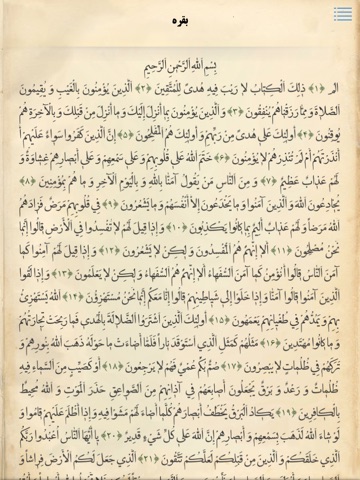 بقره
بِسْمِ اللَّهِ الرَّحْمنِ الرَّحيمِ
الم ﴿١﴾ ذلِكَ الْكِتابُ لا رَيْبَ فيهِ هُدىً لِلْمُتَّقينَ ﴿٢﴾ الَّذينَ يُؤْمِنُونَ بِالْغَيْبِ وَ يُقيمُونَ
الصَّلاةَ وَ مِمَّا رَزَقْناهُمْ يُنْفِقُونَ ﴿٣﴾ وَ الَّذينَ يُؤْمِنُونَ بِما أُنْزِلَ إِلَيْكَ وَ ما أُنْزِلَ مِنْ قَبْلِكَ وَ بِالْآخِرَةِ هُمْ
يُوقِنُونَ ﴿٤﴾ أُولئِكَ عَلى هُدىً مِنْ رَبِّهِمْ وَ أُولئِكَ هُمُ الْمُفْلِحُونَ ﴿٥﴾ إِنَّ الَّذينَ كَفَرُوا سَواءٌ عَلَيْهِمْ أَ
أَنْذَرْتَهُمْ أَمْ لَمْ تُنْذِرْهُمْ لا يُؤْمِنُونَ ﴿٦﴾ خَتَمَ اللَّهُ عَلى قُلُوبِهِمْ وَ عَلى سَمْعِهِمْ وَ عَلى أَبْصارِهِمْ غِشاوَةٌ وَ
لَهُمْ عَذابٌ عَظيمٌ ﴿٧﴾ وَ مِنَ النَّاسِ مَنْ يَقُولُ آمَنَّا بِاللَّهِ وَ بِالْيَوْمِ الْآخِرِ وَ ما هُمْ بِمُؤْمِنينَ ﴿٨﴾
يُخادِعُونَ اللَّهَ وَ الَّذينَ آمَنُوا وَ ما يَخْدَعُونَ إِلاَّ أَنْفُسَهُمْ وَ ما يَشْعُرُونَ ﴿٩﴾ في قُلُوبِهِمْ مَرَضٌ فَزادَهُمُ
اللَّهُ مَرَضاً وَ لَهُمْ عَذابٌ أَليمٌ بِما كانُوا يَكْذِبُونَ ﴿١٠﴾ وَ إِذا قيلَ لَهُمْ لا تُفْسِدُوا فِي الْأَرْضِ قالُوا إِنَّما
نَحْنُ مُصْلِحُونَ ﴿١١﴾ أَلا إِنَّهُمْ هُمُ الْمُفْسِدُونَ وَ لكِنْ لا يَشْعُرُونَ ﴿١٢﴾ وَ إِذا قيلَ لَهُمْ آمِنُوا كَما
آمَنَ النَّاسُ قالُوا أَ نُؤْمِنُ كَما آمَنَ السُّفَهاءُ أَلا إِنَّهُمْ هُمُ السُّفَهاءُ وَ لكِنْ لا يَعْلَمُونَ ﴿١٣﴾ وَ إِذا لَقُوا
الَّذينَ آمَنُوا قالُوا آمَنَّا وَ إِذا خَلَوْا إِلى شَياطينِهِمْ قالُوا إِنَّا مَعَكُمْ إِنَّما نَحْنُ مُسْتَهْزِؤُنَ ﴿١٤﴾ اللَّهُ يَسْتَهْزِئُ
بِهِمْ وَ يَمُدُّهُمْ في طُغْيانِهِمْ يَعْمَهُونَ ﴿١٥﴾ أُولئِكَ الَّذينَ اشْتَرَوُا الضَّلالَةَ بِالْهُدى فَما رَبِحَتْ تِجارَتُهُمْ
وَ ما كانُوا مُهْتَدينَ ﴿١٦﴾ مَثَلُهُمْ كَمَثَلِ الَّذِي اسْتَوْقَدَ ناراً فَلَمَّا أَضاءَتْ ما حَوْلَهُ ذَهَبَ اللَّهُ بِنُورِهِمْ وَ
تَرَكَهُمْ في ظُلُماتٍ لا يُبْصِرُونَ ﴿١٧﴾ صُمٌّ بُكْمٌ عُمْيٌ فَهُمْ لا يَرْجِعُونَ ﴿١٨﴾ أَوْ كَصَيِّبٍ مِنَ السَّماءِ فيهِ
ظُلُماتٌ وَ رَعْدٌ وَ بَرْقٌ يَجْعَلُونَ أَصابِعَهُمْ في آذانِهِمْ مِنَ الصَّواعِقِ حَذَرَ الْمَوْتِ وَ اللَّهُ مُحيطٌ
بِالْكافِرينَ ﴿١٩﴾ يَكادُ الْبَرْقُ يَخْطَفُ أَبْصارَهُمْ كُلَّما أَضاءَ لَهُمْ مَشَوْا فيهِ وَ إِذا أَظْلَمَ عَلَيْهِمْ قامُوا وَ
لَوْ شاءَ اللَّهُ لَذَهَبَ بِسَمْعِهِمْ وَ أَبْصارِهِمْ إِنَّ اللَّهَ عَلى كُلِّ شَيْءٍ قَديرٌ ﴿٢٠﴾ يا أَيُّهَا النَّاسُ اعْبُدُوا رَبَّكُمُ
الَّذي خَلَقَكُمْ وَ الَّذينَ مِنْ قَبْلِكُمْ لَعَلَّكُمْ تَتَّقُونَ ﴿٢١﴾ الَّذي جَعَلَ لَكُمُ الْأَرْضَ فِراشاً وَ